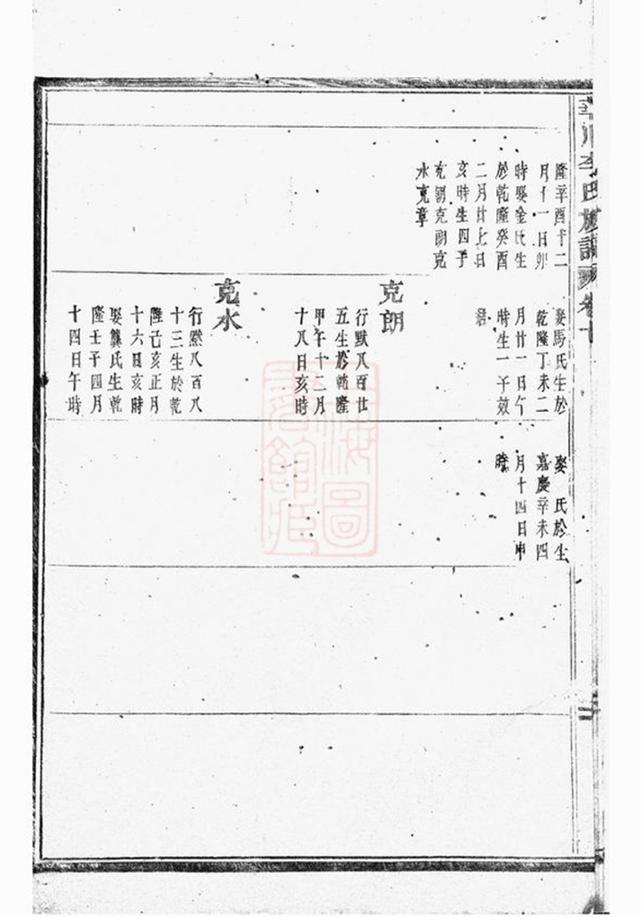 隆辛酉十二
月十一日卯
時娶金氏生
於乾隆癸酉
二月廿七日
亥時生四子
克朗克
水克章
娶馬氏生於
乾隆丁未二
月廿一日午
時生一子效
娶 氏於生
嘉慶辛未四
月十四日申
克朗
行默八百廿
五生於乾隆
甲午十二月
十八日亥時
克水
行默八百八
十三生於乾
隆己亥正月
十六日亥時
娶龔氏生乾
隆壬午四月
十四日午時
李氏族譜 卷十